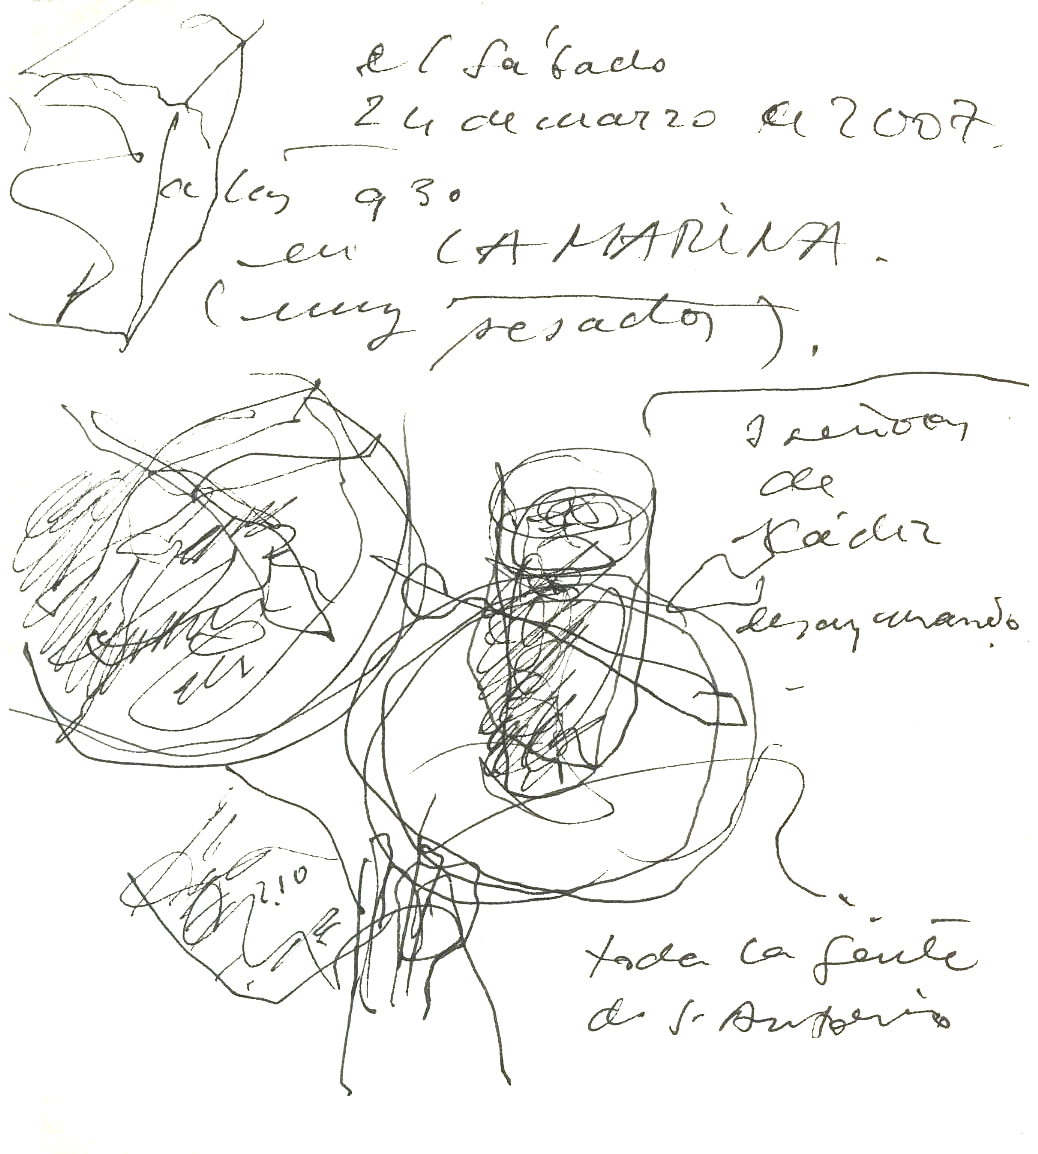 el sábado
24 de marzo de 2007.
a las 930
en LA MARINA.
(muy pesados).
3 señores
de
Kádiz
desayunando.
2.10
toda la gente
de S. Antonio